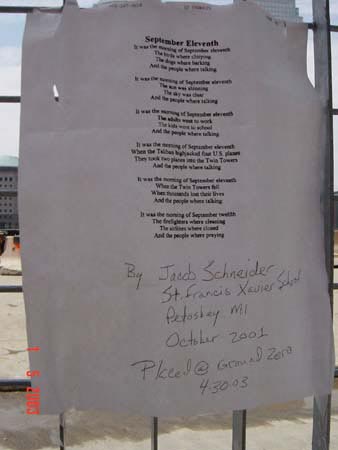 September Eleventh
It was the morning of September eleventh
The birds where chirping
The dogs where barking
And the people where talking
It was the morning of September eleventh
The sun was shinning
The sky was clear
And the people where talking
It was the morning of September eleventh
The adults went to work
The kids went to school
And the people where talking
It was the morning of September eleventh
When the Taliban highjacked four U.S. planes
They took two planes into the Twin Towers
And the people where talking
It was the morning of September eleventh
When the Twin Towers fell
When thousands lost their lives
And the people where talking
It was the morning of September twelfth
The firefighters where cleaning
The airlines where closed
And the people where praying
By Jacob Schneider
St. Francis Xavier School
Petoskey MI
October 2001
Placed @ Ground Zero
4-30-03